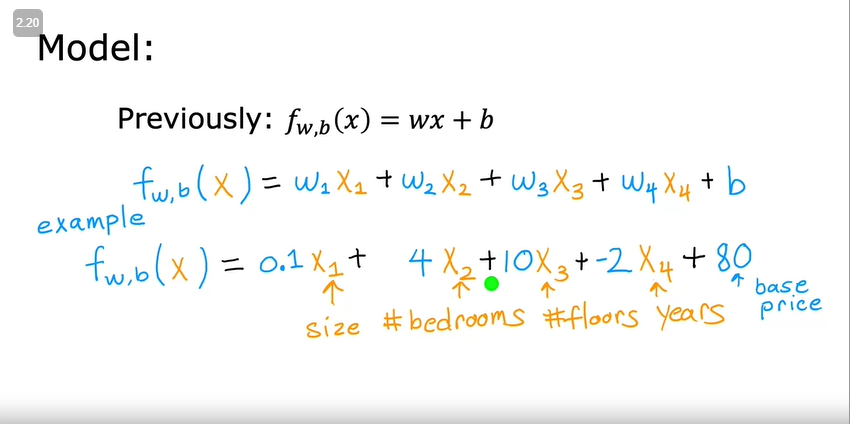 2.20
Model:
Previously: f_{w,b}(x) = wx + b
f_{w,b}(x) = w₁x₁ + w₂x₂ + w₃x₃ + w₄x₄ + b
example
f_{w,b}(x) = 0.1x₁ + 4x₂ + 10x₃ + -2x₄ + 80
↑ ↑ ↑ ↑ ↑ base
size #bedrooms #floors years price